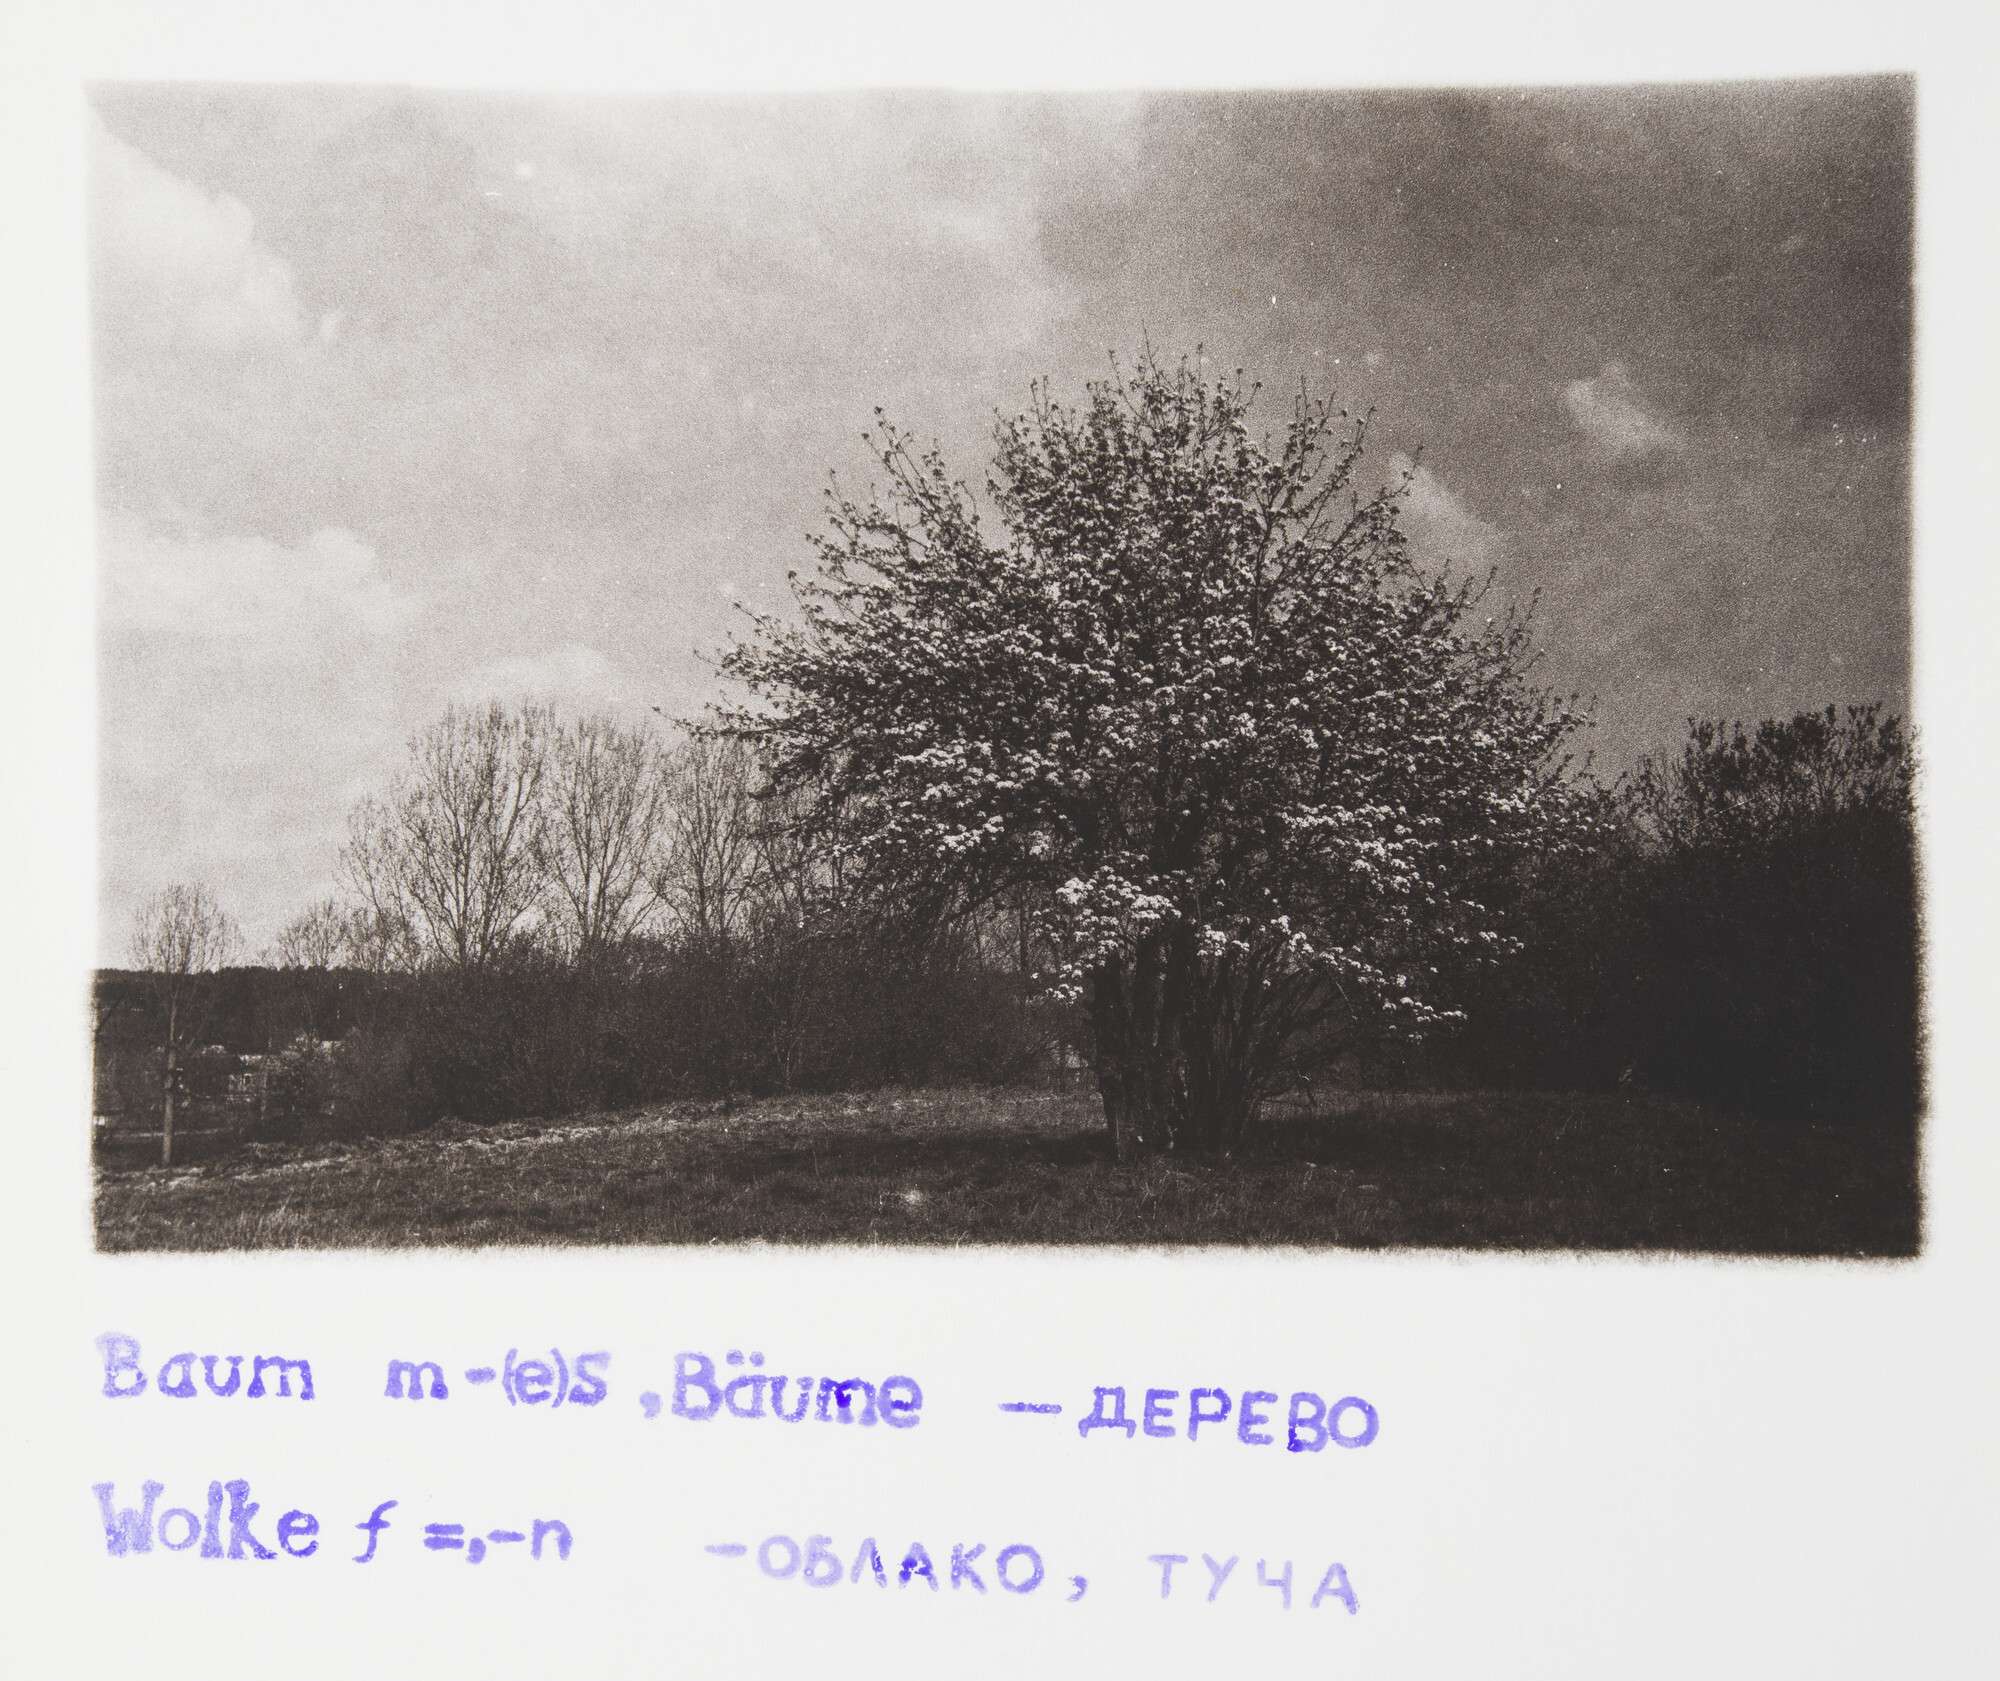 Baum m-(e)s, Bäume – ДЕРЕВО
Wolke f =,-n - ОБЛАКО, ТУЧА